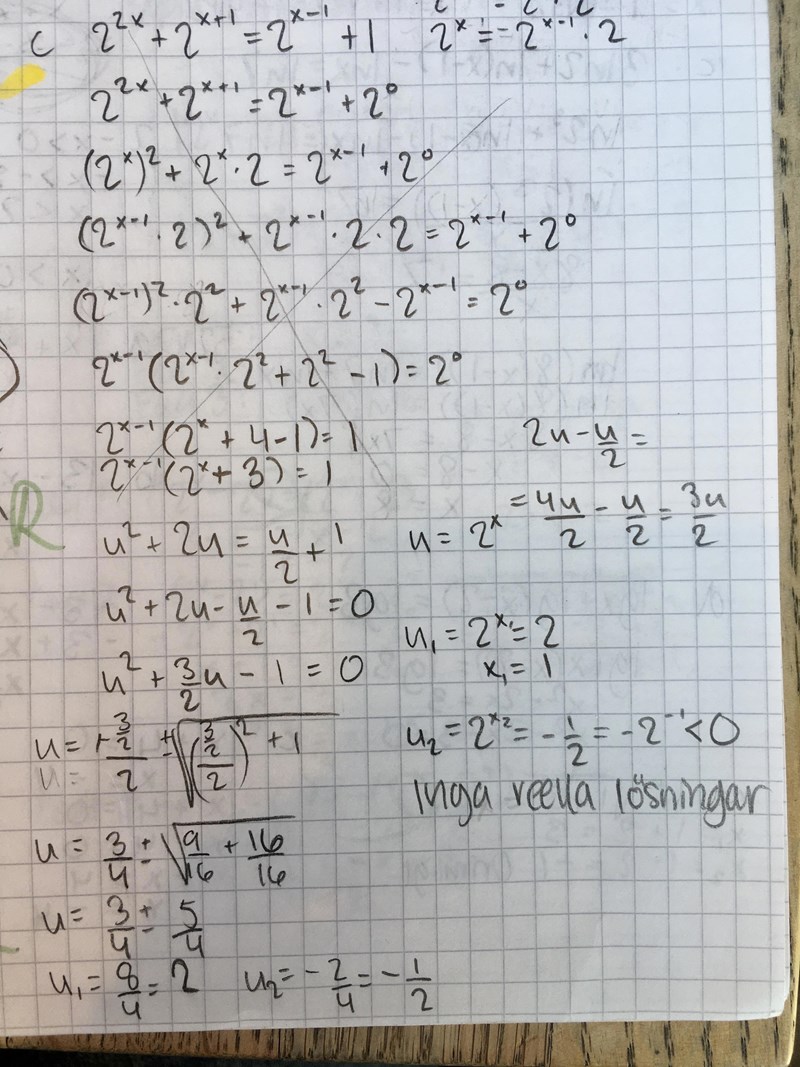 c 2^{2x} + 2^{x+1} = 2^{x-1} + 1 2^x = 2^{x-1} · 2
2^{2x} + 2^{x+1} = 2^{x-1} + 2^0
(2^x)^2 + 2^x · 2 = 2^{x-1} + 2^0
(2^{x-1} · 2)^2 + 2^{x-1} · 2 · 2 = 2^{x-1} + 2^0
(2^{x-1})^2 · 2^2 + 2^{x-1} · 2^2 - 2^{x-1} = 2^0
2^{x-1} (2^{x-1} · 2^2 + 2^2 - 1) = 2^0
2^{x-1} (2^x + 4 - 1) = 1
2^{x-1} (2^x + 3) = 1
R
u^2 + 2u = u/2 + 1
u^2 + 2u - u/2 - 1 = 0
u^2 + 3/2 u - 1 = 0
u = + (3/2)/2 ± √(((3/2)/2)^2 + 1)
u =
u = 3/4 ± √(9/16 + 16/16)
u = 3/4 ± 5/4
u_1 = 8/4 = 2 u_2 = - 2/4 = - 1/2
2u - u/2 =
= 4u/2 - u/2 = 3u/2
u = 2^x
u_1 = 2^{x_1} = 2
x_1 = 1
u_2 = 2^{x_2} = - 1/2 = -2^{-1} < 0
Inga reella lösningar